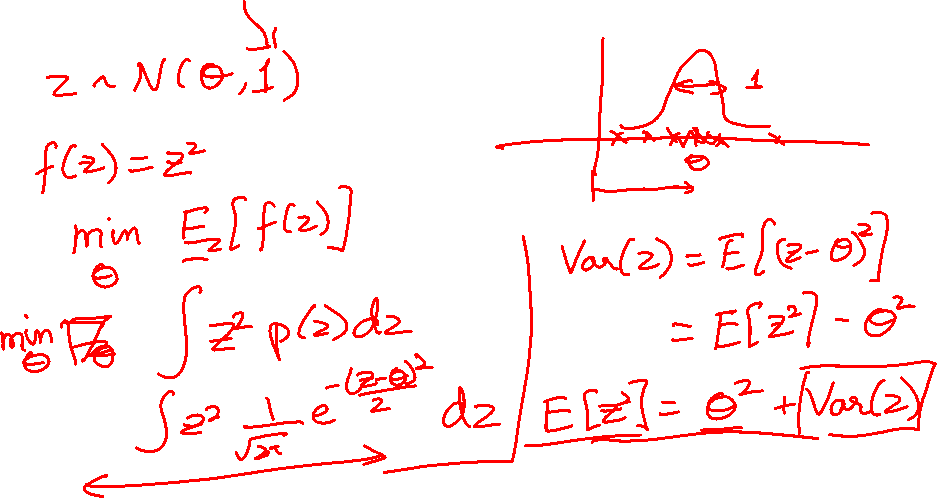 z ~ N(θ, 1)
f(z) = z²
min_θ E_z[f(z)]
min_θ ∫ z² p(z) dz
∫ z² 1/√2π e^(-(z-θ)²/2) dz
1
θ
Var(z) = E[(z-θ)²]
= E[z²] - θ²
E[z²] = θ² + Var(z)